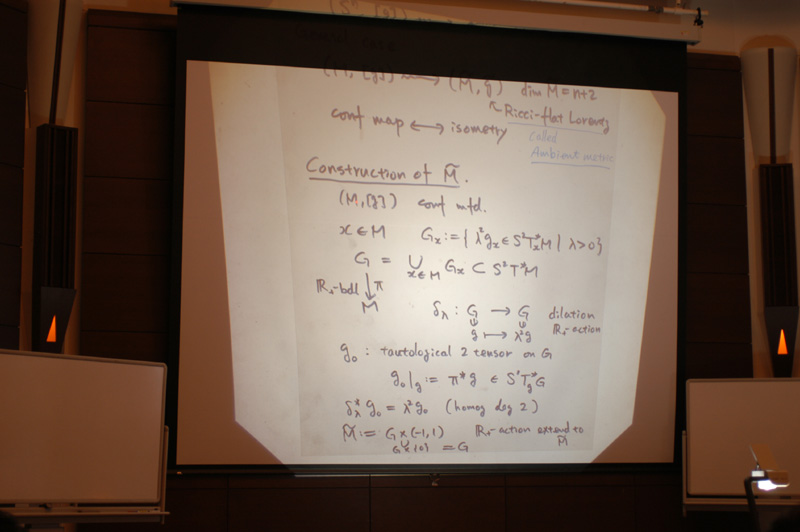 (Sⁿ, [g])
(M, [g]) ⟿ (M̃, g̃) dim M̃ = n+2
↖ Ricci-flat Lorentz
conf map ⟷ isometry called
Ambient metric
Construction of M̃.
(M, [g]) conf mfd.
x ∈ M Gₓ := { λ²gₓ ∈ S²Tₓ*M | λ>0 }
G = ∪ Gₓ ⊂ S²T*M
x∈M
ℝ₊-bdl ↓ π
M
δ_λ : G → G dilation
g ↦ λ²g ℝ₊-action
g₀ : tautological 2 tensor on G
g₀|_g := π*g ∈ S²T_g*G
δ_λ* g₀ = λ²g₀ (homog deg 2)
M̃ := G×(-1,1) ℝ₊-action extend to M̃
∪
G×{0} = G